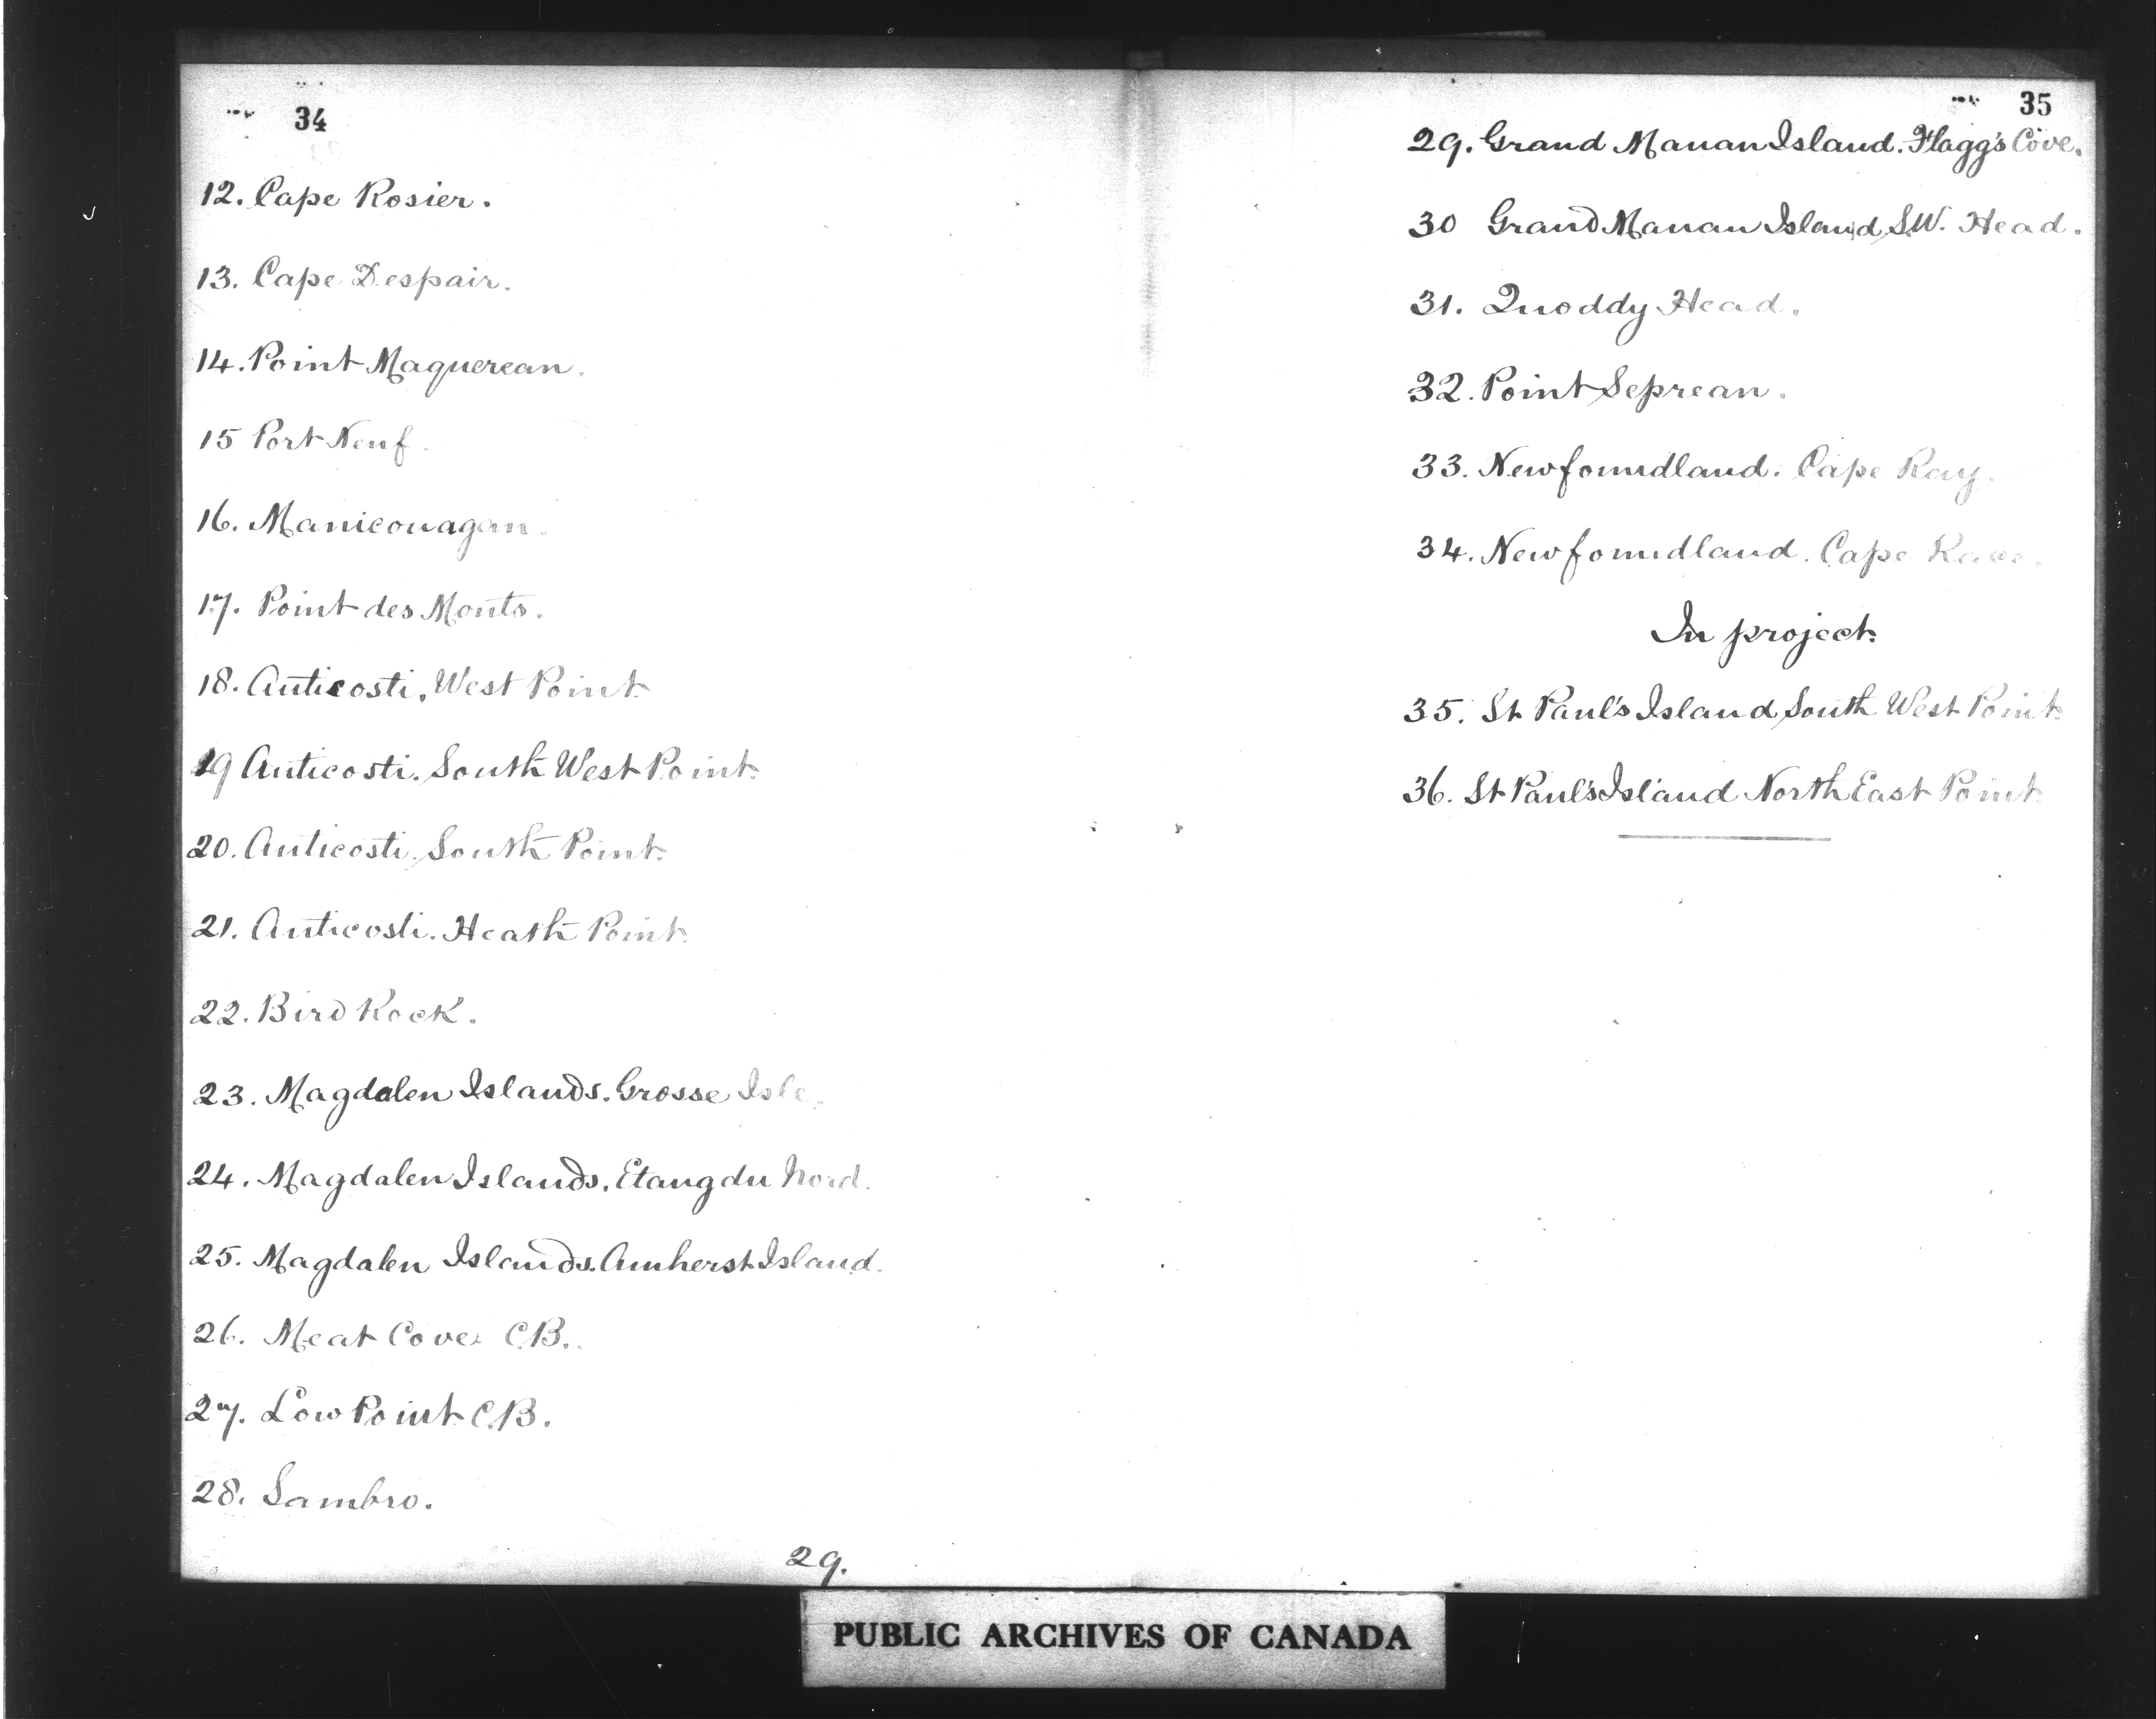 34
12. Cape Rosier.
13. Cape Despair.
14. Point Maquereau.
15 Port Neuf.
16. Manicouagan.
17. Point des Monts.
18. Anticosti, West Point.
19 Anticosti. South West Point.
20. Anticosti. South Point.
21. Anticosti. Heath Point.
22. Bird Rock.
23. Magdalen Islands. Grosse Isle.
24. Magdalen Islands. Etang du Nord.
25. Magdalen Islands. Amherst Island.
26. Meat Cove C.B.
27. Low Point C.B.
28. Sambro.
29.
35
29. Grand Manan Island. Flagg's Cove.
30 Grand Manan Island, S.W. Head.
31. Quoddy Head.
32. Point Lepreau.
33. Newfoundland. Cape Ray.
34. Newfoundland. Cape Race.
In project.
35. St Paul's Island South West Point.
36. St Paul's Island North East Point.
PUBLIC ARCHIVES OF CANADA